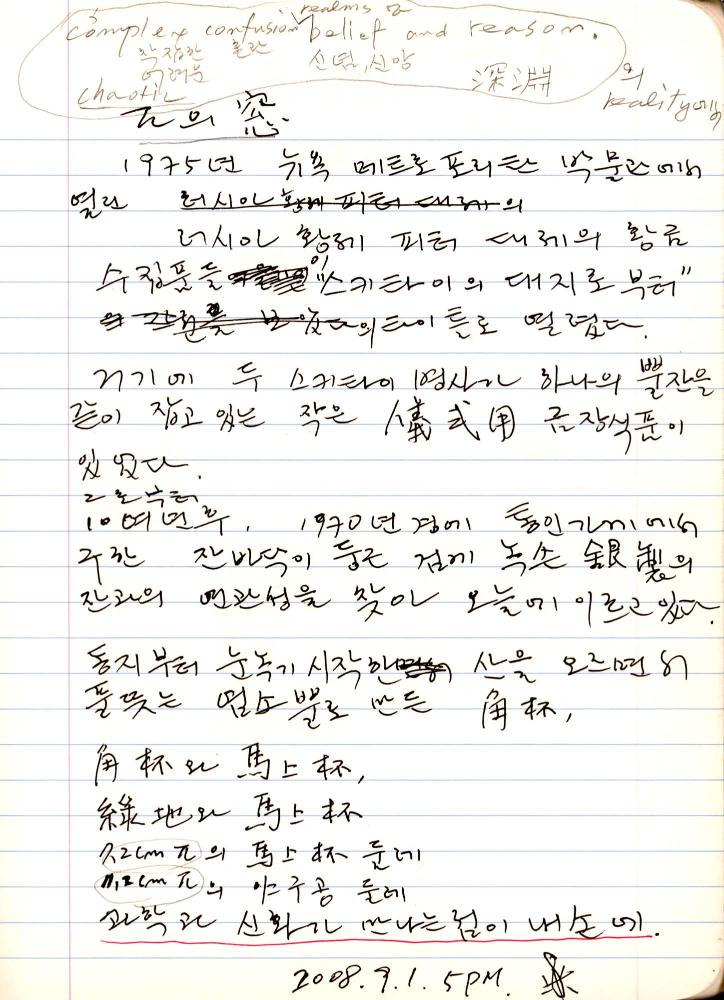 realms of
complex confusion belief and reason.
착잡한 혼란 신념, 신앙
어려운 深淵 의
chaotic reality에서
눈의 窓.
1975년 뉴욕 메트로포리탄 박물관에서
열린 러시아 황제 피터 대제의
러시아 황제 피터 대제의 황금
수집품들이 "스키타이의 대지로부터"
의 타이틀로 열렸다.
거기에 두 스키타이 병사가 하나의 뿔잔을
같이 잡고 있는 작은 儀式用 금장식품이
있었다.
그로부터
10여년후, 1990년경에 통인가게에서
구한 잔바닥이 둥근 검게 녹슨 銀製의
잔과의 연관성을 찾아 오늘에 이르고있다.
동지부터 눈녹기 시작한 산을 오르면서
풀뜻는 염소뿔로 만든 角杯,
角杯와 馬上杯,
綠地와 馬上杯
7.2cm π의 馬上杯 둘레
11.2cm π의 야구공 둘레
과학과 신화가 만나는점이 내손에.
2008.9.1. 5PM.